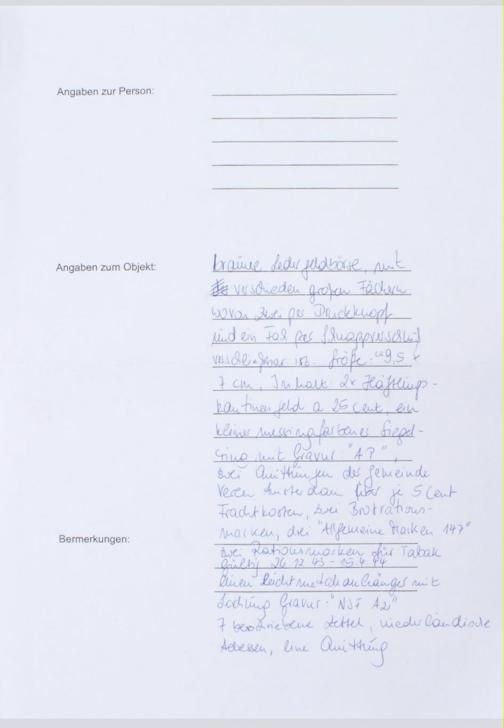 Angaben zur Person:
Angaben zum Objekt:
braune Ledergeldbörse, mit
verschieden großen Fächern
wovon zwei per Druckknopf
und ein Fa per Schnappverschluß
Größe: 9,5
7 cm, Inhalt: 2x Häftlings-
kantinengeld a 25 Cent, ein
kleiner messingfarbenes Siegel-
ring mit Gravur "AP",
zwei Quittungen der Gemeinde
Amsterdam über je 5 Cent
Frachtkosten, zwei Brotrations-
marken, drei "Allgemeine Marken 147"
Bermerkungen:
zwei Rationsmarken für Tabak
gültig 26 12 43 - 15.4 44
einen Leichtmetallanhänger mit
Lochung Gravur: "NSF A2"
7 beschriebene Zettel, niederländische
Adressen, eine Quittung